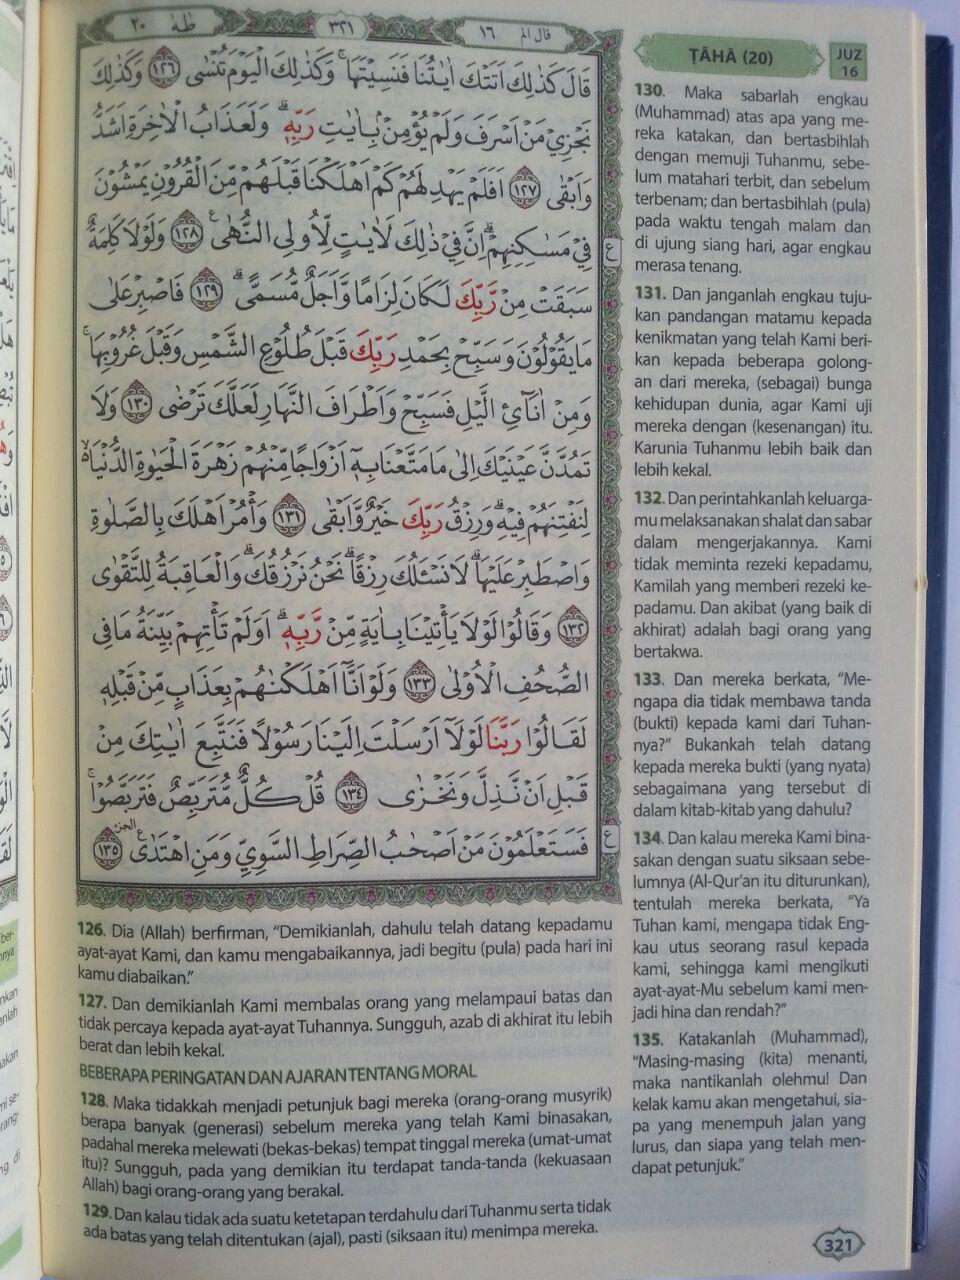 طٰهٰ ٢٠
٣٢١
قال الم ١٦
قَالَ كَذٰلِكَ اَتَتْكَ اٰيٰتُنَا فَنَسِيْتَهَاۚ وَكَذٰلِكَ الْيَوْمَ تُنْسٰى ١٢٦ وَكَذٰلِكَ
نَجْزِيْ مَنْ اَسْرَفَ وَلَمْ يُؤْمِنْۢ بِاٰيٰتِ رَبِّهٖۗ وَلَعَذَابُ الْاٰخِرَةِ اَشَدُّ
وَاَبْقٰى ١٢٧ اَفَلَمْ يَهْدِ لَهُمْ كَمْ اَهْلَكْنَا قَبْلَهُمْ مِّنَ الْقُرُوْنِ يَمْشُوْنَ
فِيْ مَسٰكِنِهِمْۗ اِنَّ فِيْ ذٰلِكَ لَاٰيٰتٍ لِّاُولِى النُّهٰى ١٢٨ وَلَوْلَا كَلِمَةٌ
سَبَقَتْ مِنْ رَّبِّكَ لَكَانَ لِزَامًا وَّاَجَلٌ مُّسَمًّىۗ ١٢٩ فَاصْبِرْ عَلٰى
مَا يَقُوْلُوْنَ وَسَبِّحْ بِحَمْدِ رَبِّكَ قَبْلَ طُلُوْعِ الشَّمْسِ وَقَبْلَ غُرُوْبِهَاۚ
وَمِنْ اٰنَاۤئِ الَّيْلِ فَسَبِّحْ وَاَطْرَافَ النَّهَارِ لَعَلَّكَ تَرْضٰى ١٣٠ وَلَا
تَمُدَّنَّ عَيْنَيْكَ اِلٰى مَا مَتَّعْنَا بِهٖٓ اَزْوَاجًا مِّنْهُمْ زَهْرَةَ الْحَيٰوةِ الدُّنْيَا ەۙ
لِنَفْتِنَهُمْ فِيْهِۗ وَرِزْقُ رَبِّكَ خَيْرٌ وَّاَبْقٰى ١٣١ وَأْمُرْ اَهْلَكَ بِالصَّلٰوةِ
وَاصْطَبِرْ عَلَيْهَاۗ لَا نَسْـَٔلُكَ رِزْقًاۗ نَحْنُ نَرْزُقُكَۗ وَالْعَاقِبَةُ لِلتَّقْوٰى
١٣٢ وَقَالُوْا لَوْلَا يَأْتِيْنَا بِاٰيَةٍ مِّنْ رَّبِّهٖۗ اَوَلَمْ تَأْتِهِمْ بَيِّنَةُ مَا فِى
الصُّحُفِ الْاُوْلٰى ١٣٣ وَلَوْ اَنَّآ اَهْلَكْنٰهُمْ بِعَذَابٍ مِّنْ قَبْلِهٖ
لَقَالُوْا رَبَّنَا لَوْلَآ اَرْسَلْتَ اِلَيْنَا رَسُوْلًا فَنَتَّبِعَ اٰيٰتِكَ مِنْ
قَبْلِ اَنْ نَّذِلَّ وَنَخْزٰى ١٣٤ قُلْ كُلٌّ مُّتَرَبِّصٌ فَتَرَبَّصُوْاۚ
فَسَتَعْلَمُوْنَ مَنْ اَصْحٰبُ الصِّرَاطِ السَّوِيِّ وَمَنِ اهْتَدٰى ١٣٥
الجزء
ع
ع
126. Dia (Allah) berfirman, “Demikianlah, dahulu telah datang kepadamu
ayat-ayat Kami, dan kamu mengabaikannya, jadi begitu (pula) pada hari ini
kamu diabaikan.”
127. Dan demikianlah Kami membalas orang yang melampaui batas dan
tidak percaya kepada ayat-ayat Tuhannya. Sungguh, azab di akhirat itu lebih
berat dan lebih kekal.
BEBERAPA PERINGATAN DAN AJARAN TENTANG MORAL
128. Maka tidakkah menjadi petunjuk bagi mereka (orang-orang musyrik)
berapa banyak (generasi) sebelum mereka yang telah Kami binasakan,
padahal mereka melewati (bekas-bekas) tempat tinggal mereka (umat-umat
itu)? Sungguh, pada yang demikian itu terdapat tanda-tanda (kekuasaan
Allah) bagi orang-orang yang berakal.
129. Dan kalau tidak ada suatu ketetapan terdahulu dari Tuhanmu serta tidak
ada batas yang telah ditentukan (ajal), pasti (siksaan itu) menimpa mereka.
ṬĀHĀ (20)
JUZ
16
130. Maka sabarlah engkau
(Muhammad) atas apa yang me-
reka katakan, dan bertasbihlah
dengan memuji Tuhanmu, sebe-
lum matahari terbit, dan sebelum
terbenam; dan bertasbihlah (pula)
pada waktu tengah malam dan
di ujung siang hari, agar engkau
merasa tenang.
131. Dan janganlah engkau tuju-
kan pandangan matamu kepada
kenikmatan yang telah Kami beri-
kan kepada beberapa golong-
an dari mereka, (sebagai) bunga
kehidupan dunia, agar Kami uji
mereka dengan (kesenangan) itu.
Karunia Tuhanmu lebih baik dan
lebih kekal.
132. Dan perintahkanlah keluarga-
mu melaksanakan shalat dan sabar
dalam mengerjakannya. Kami
tidak meminta rezeki kepadamu,
Kamilah yang memberi rezeki ke-
padamu. Dan akibat (yang baik di
akhirat) adalah bagi orang yang
bertakwa.
133. Dan mereka berkata, “Me-
ngapa dia tidak membawa tanda
(bukti) kepada kami dari Tuhan-
nya?” Bukankah telah datang
kepada mereka bukti (yang nyata)
sebagaimana yang tersebut di
dalam kitab-kitab yang dahulu?
134. Dan kalau mereka Kami bina-
sakan dengan suatu siksaan sebe-
lumnya (Al-Qur’an itu diturunkan),
tentulah mereka berkata, “Ya
Tuhan kami, mengapa tidak Eng-
kau utus seorang rasul kepada
kami, sehingga kami mengikuti
ayat-ayat-Mu sebelum kami men-
jadi hina dan rendah?”
135. Katakanlah (Muhammad),
“Masing-masing (kita) menanti,
maka nantikanlah olehmu! Dan
kelak kamu akan mengetahui, sia-
pa yang menempuh jalan yang
lurus, dan siapa yang telah men-
dapat petunjuk.”
321